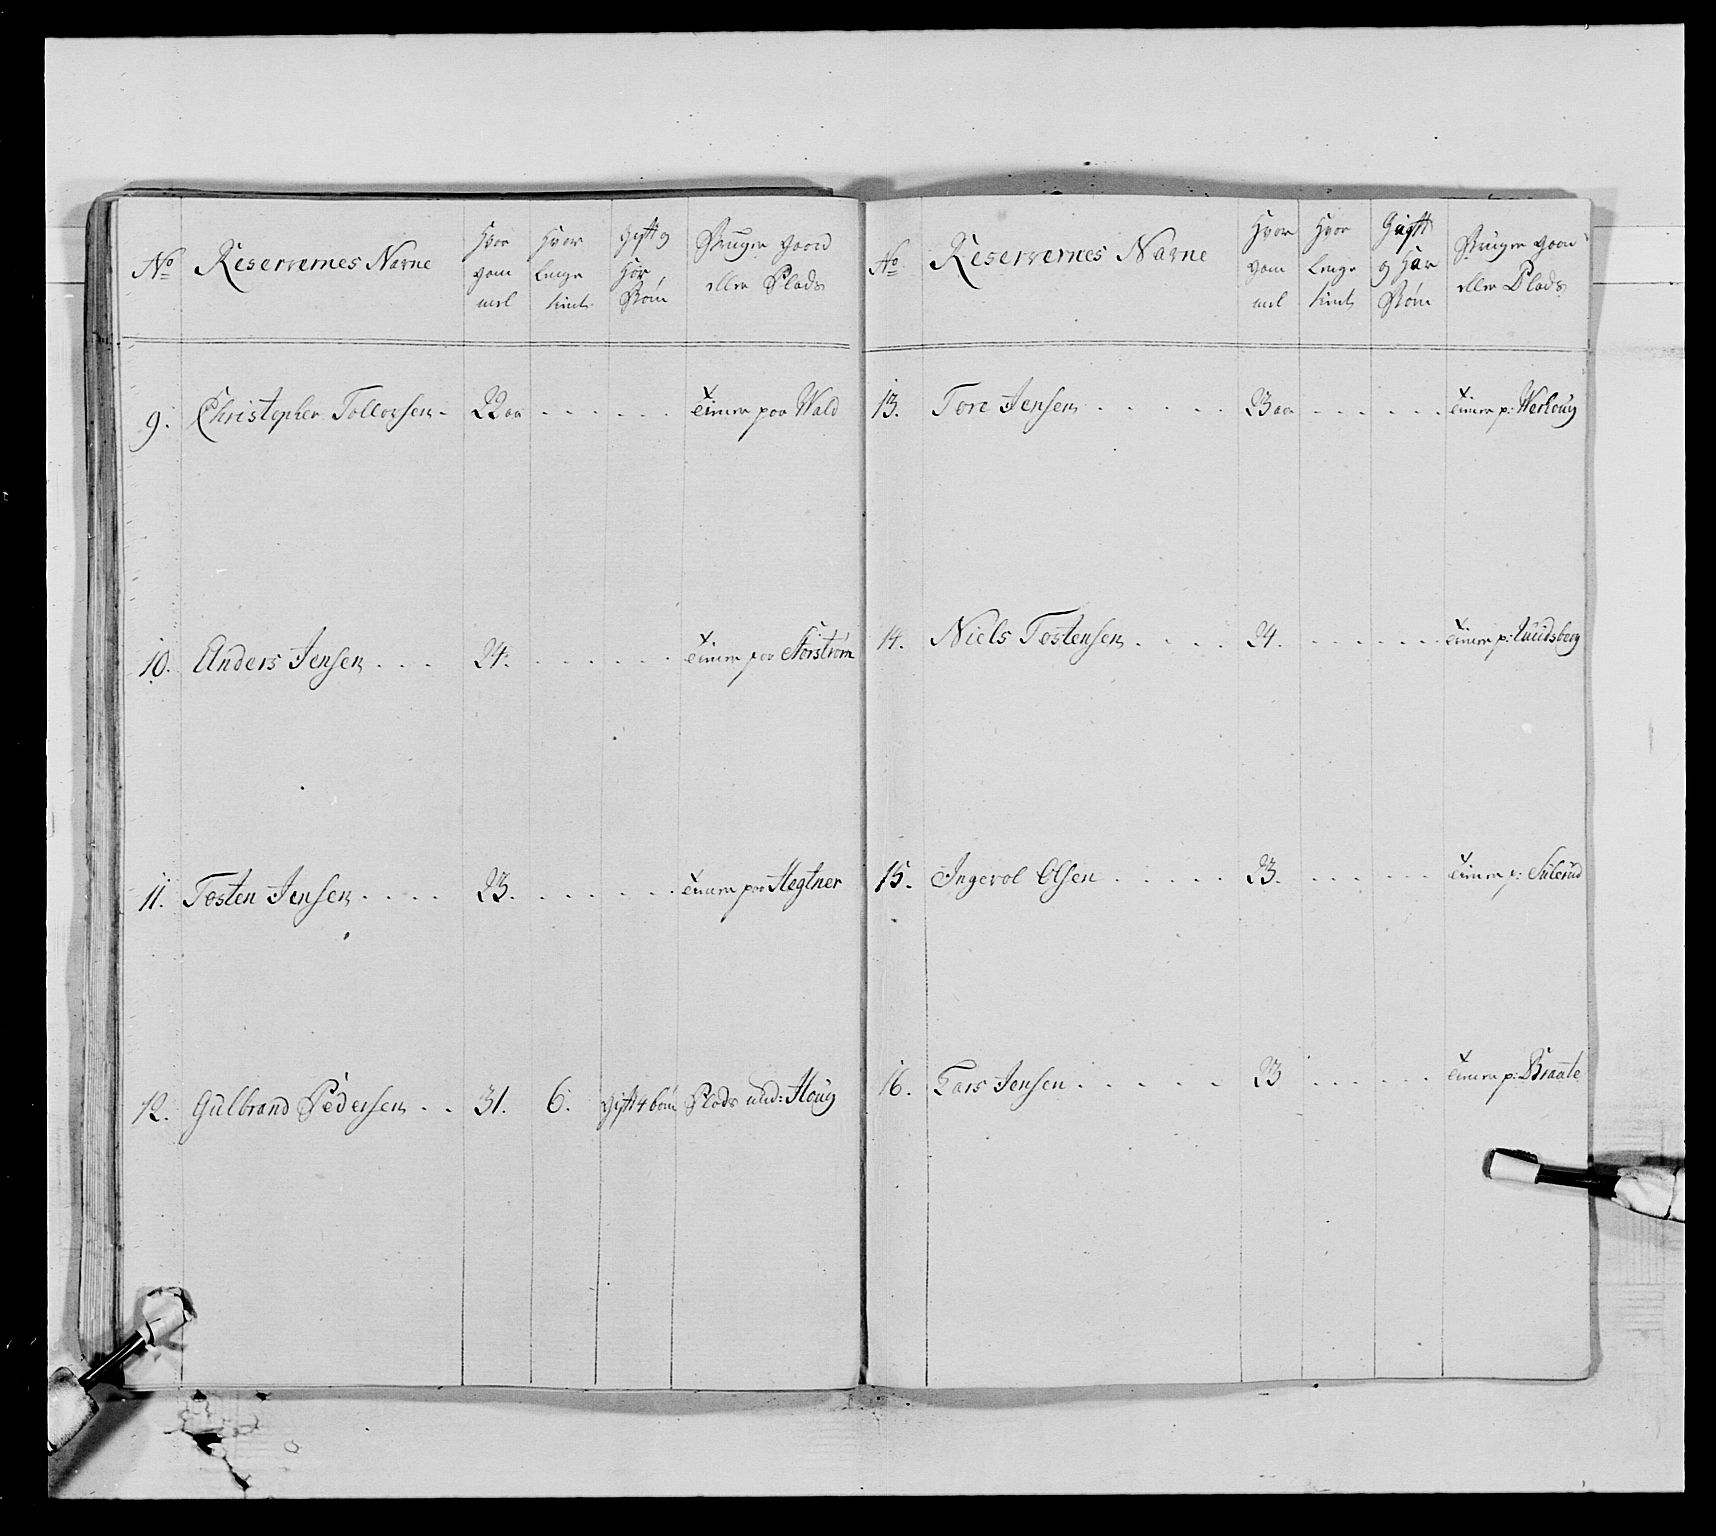 No Reservernes Navne Hvor gam mel Hvor lenge tient Gift og Hor Børn Bruger gaard eller Plads
9. Christopher Tollovsen 22 aa tienner paa Wald
10. Anders Jensen 24. tienner paa Storstrøm
11. Tosten Jensen 23. tienner paa Hegtner
12. Gulbrand Pedersen 31. 6. gift 4 børn Plads und: Houg
No Reservernes Navne Hvor gam mel Hvor lenge tient Gift og Har Børn Bruger gaard eller Plads
13. Tore Jensen 23 aa tienner p: Werhoug
14. Niels Tostensen 24. tienner p:
15. Ingevol Olsen 23. tienner p: Sulerud
16. Lars Jensen 23 tienner p: Braate